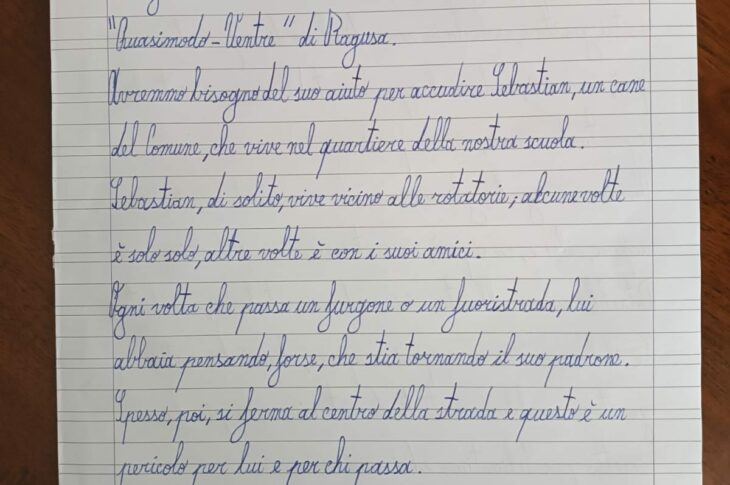 "Quasimodo - Ventre" di Ragusa.
Avremmo bisogno del suo aiuto per accudire Sebastian, un cane
del Comune, che vive nel quartiere della nostra scuola.
Sebastian, di solito, vive vicino alle rotatorie; alcune volte
è solo solo, altre volte è con i suoi amici.
Ogni volta che passa un furgone o un fuoristrada, lui
abbaia pensando, forse, che stia tornando il suo padrone.
Spesso, poi, si ferma al centro della strada e questo è un
pericolo per lui e per chi passa.